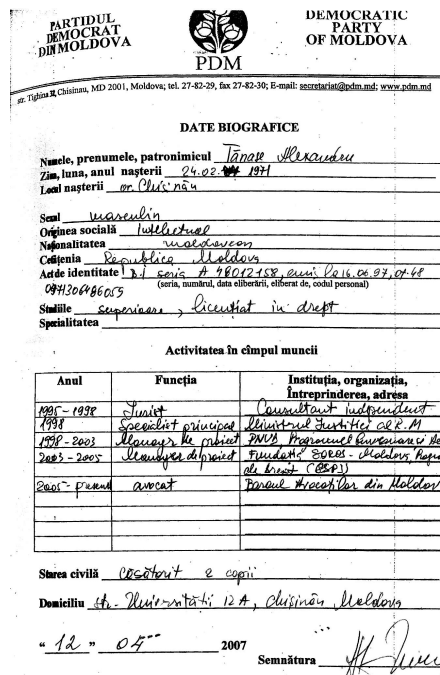 PARTIDUL DEMOCRATIC
DEMOCRAT PARTY
DIN MOLDOVA OF MOLDOVA
PDM
str. Tighina 32, Chisinau, MD 2001, Moldova; tel. 27-82-29, fax 27-82-30; E-mail: secretariat@pdm.md; www.pdm.md
DATE BIOGRAFICE
Numele, prenumele, patronimicul Tănase Alexandru
Ziua, luna, anul nașterii 24.02. 1971
Locul nașterii or. Chișinău
Sexul masculin
Originea socială Intelectual
Naționalitatea moldovean
Cetățenia Republica Moldova
Act de identitate B.i seria A 48012158, emis la 16.06.97, of. 48
(seria, numărul, data eliberării, eliberat de, codul personal)
0971306486059
Studiile superioare, licențiat în drept
Specialitatea
Activitatea în cîmpul muncii
Anul Funcția Instituția, organizația,
Întreprinderea, adresa
1995-1998 Jurist Consultant independent
1998 Specialist principal Ministerul Justiției al R.M
1998-2003 Manager de proiect PNUD, Programul
2003-2005 Manager de proiect Fundația SOROS-Moldova,
2005-prezent avocat Baroul Avocaților din Moldov
Starea civilă căsătorit 2 copii
Domiciliu str. Universității 12A, Chișinău, Moldova
" 12 " 04 2007
Semnătura